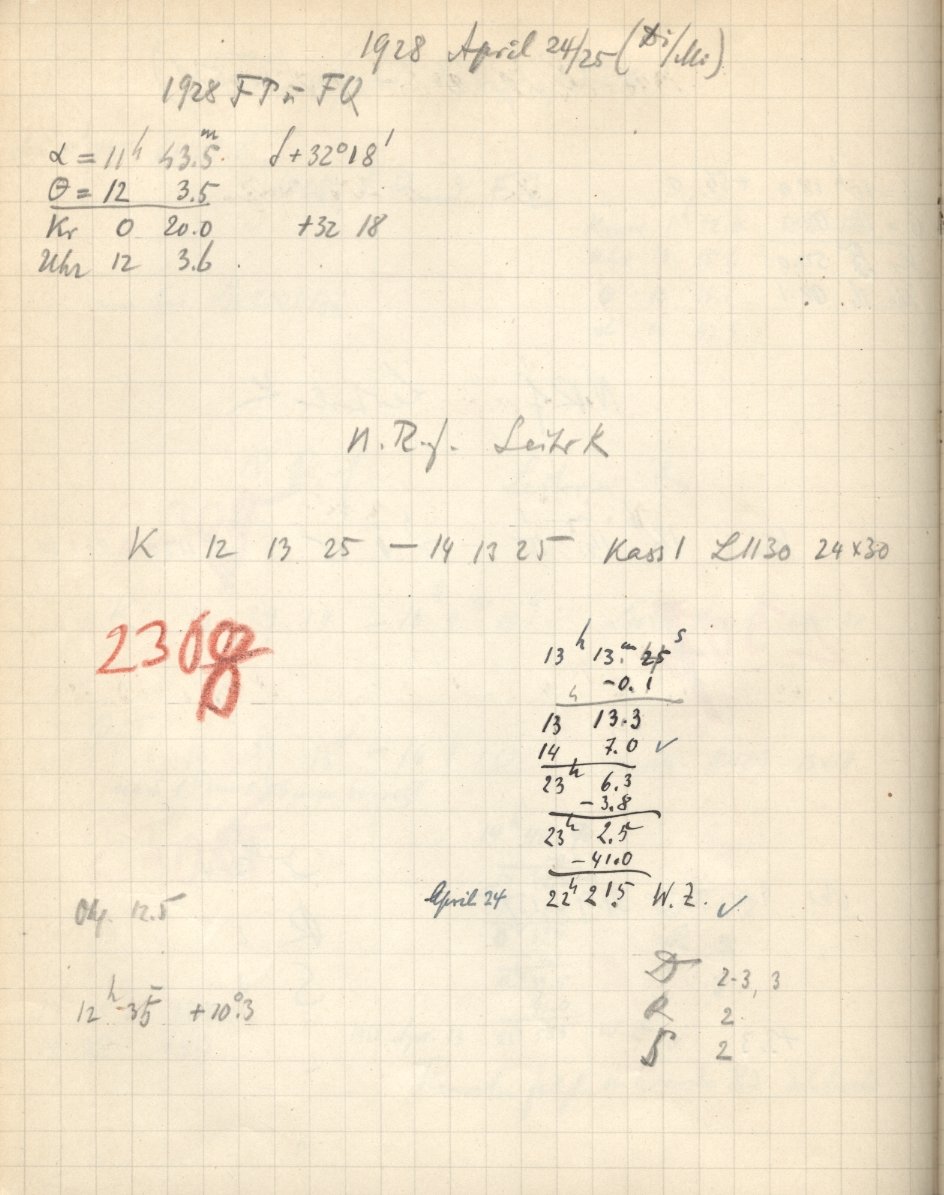 1928 April 24/25 (Di/Mi)
1928 FP u FQ
α = 11h 43.5m δ + 32° 18'
Θ = 12 3.5
Kr 0 20.0 +32 18
Uhr 12 3.6
n. Rf. Leitrk
K 12 13 25 – 14 13 25 Kass 1 L1130 24 x 30
13h 13m 25s
-0.1
13 13.3
14 7.0 ✓
23h 6.3
-3.8
23h 2.5
-41.0
April 24 22h 21.5 W.Z. ✓
Obj. 12.5
D 2-3, 3
R 2
12h 35 +10°.3
S 2